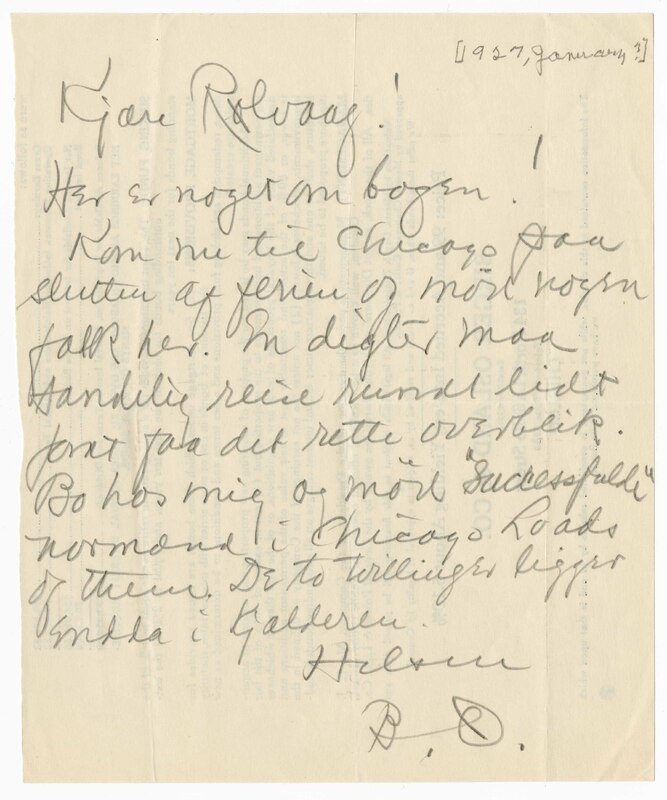 [1927, January?]
Kjære Rølvaag!
Her er noget om bogen!
Kom nu til Chicago paa
slutten af ferien og mød nogen
folk her. En digter maa
sandelig reise rundt lidt
for at faa det rette overblik.
Bo hos mig og mød "Successfulde"
normænd i Chicago Loads
of them. De to tvillinger ligger
endda i Kjælderen.
Hilsen
B. O.